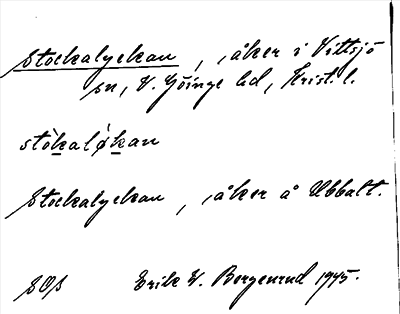 Stockalyckan, åker i Vittsjö
sn, V. Göinge hd, Krist. l.
stòkalỳkan
Stockalyckan, åker å Ubbalt.
SOS Erik W. Bergenrud 1945.